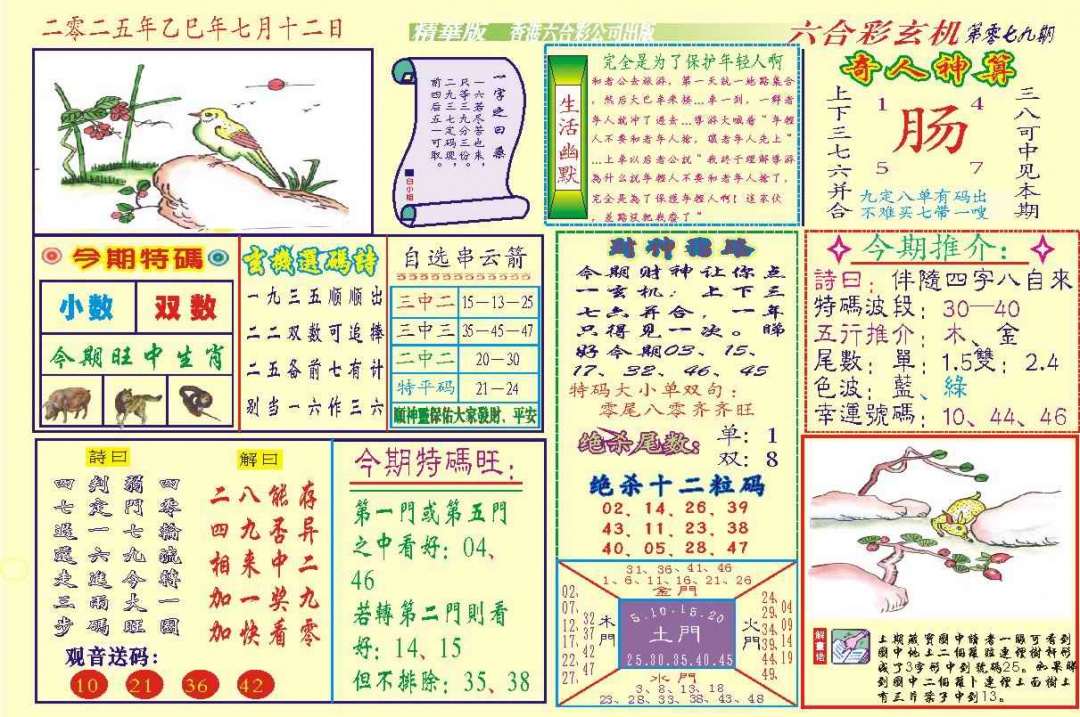 二零二五年乙巳年七月十二日
精華版 香港六合彩公司出版
六合彩玄机 第零七九期
一字之曰桑
一六若尽也来，
只等九分若份，
二九三定三现，
前四后五七一可码取。
白小姐
生活幽默
完全是为了保护年轻人啊
和老公去旅游，第一天就一地路集合
，然后大巴车来接…车一到，一群老
年人就冲了过去…導游大喊着“年輕
人不要和老年人搶，讓老年人先上”
…上车以后老公説“我终于理解導游
為什么説年輕人不要和老年人搶了，
完全是為了保護年輕人啊！這家伙
，差點没把我擠了”
奇人神算
上下三七六并合
1 4
肠
5 7
三八可中见本期
九定八单有码出
不难买七带一嗖
今期特碼
小数 双数
今期旺中生肖
玄機選碼詩
一九三五顺顺出
二二双数可追捧
二五备前七有计
别当一六作三六
自选串云箭
三中二 15—13—25
三中三 35—45—47
二中二 20—30
特平码 21—24
顺神靈保佑大家發財、平安
今期财神让你点
一玄机：上下三
七六并合，一年
只得见一次。睇
好今期03、15、
17、32、46、45
特码大小单双句：
零尾八零齐齐旺
绝杀尾数： 单：1
双：8
绝杀十二粒码
02、14、26、39
43、11、23、38
40、05、28、47
今期推介：
詩曰：伴隨四字八自來
特碼波段：30—40
五行推介：木、金
尾數：單：1.5雙：2.4
色波：藍、綠
幸運號碼：10、44、46
詩曰
四七選還走三步
判定一六進兩碼
弱門七九今大旺
四零輪流特一圈
解曰
二八能存
四九否异
相来中二
加一奖九
加快看零
观音送码：
10 21 36 42
今期特碼旺：
第一門或第五門
之中看好：04、
46
若轉第二門則看
好：14、15
但不排除：35、38
31、36、41、46
1、6、11、16、21、26
金門
02、07、12、17、22、27、
32、37、42、47
木門
5.10.15.20
土門
25.30.35.40.45
火門
24、29、34、39、44、49、
04、09、14、19
水門
3、8、13、18
23、28、33、38、43、48
解畫佬
上期藏寶圖中讀者一眼可看到
圖中地上二個蘿蔔連裡樹杆形
成了3字形中到號碼25。如果睇
到圖中二個蘿卜連裡上面樹上
有三片葉子中到13。